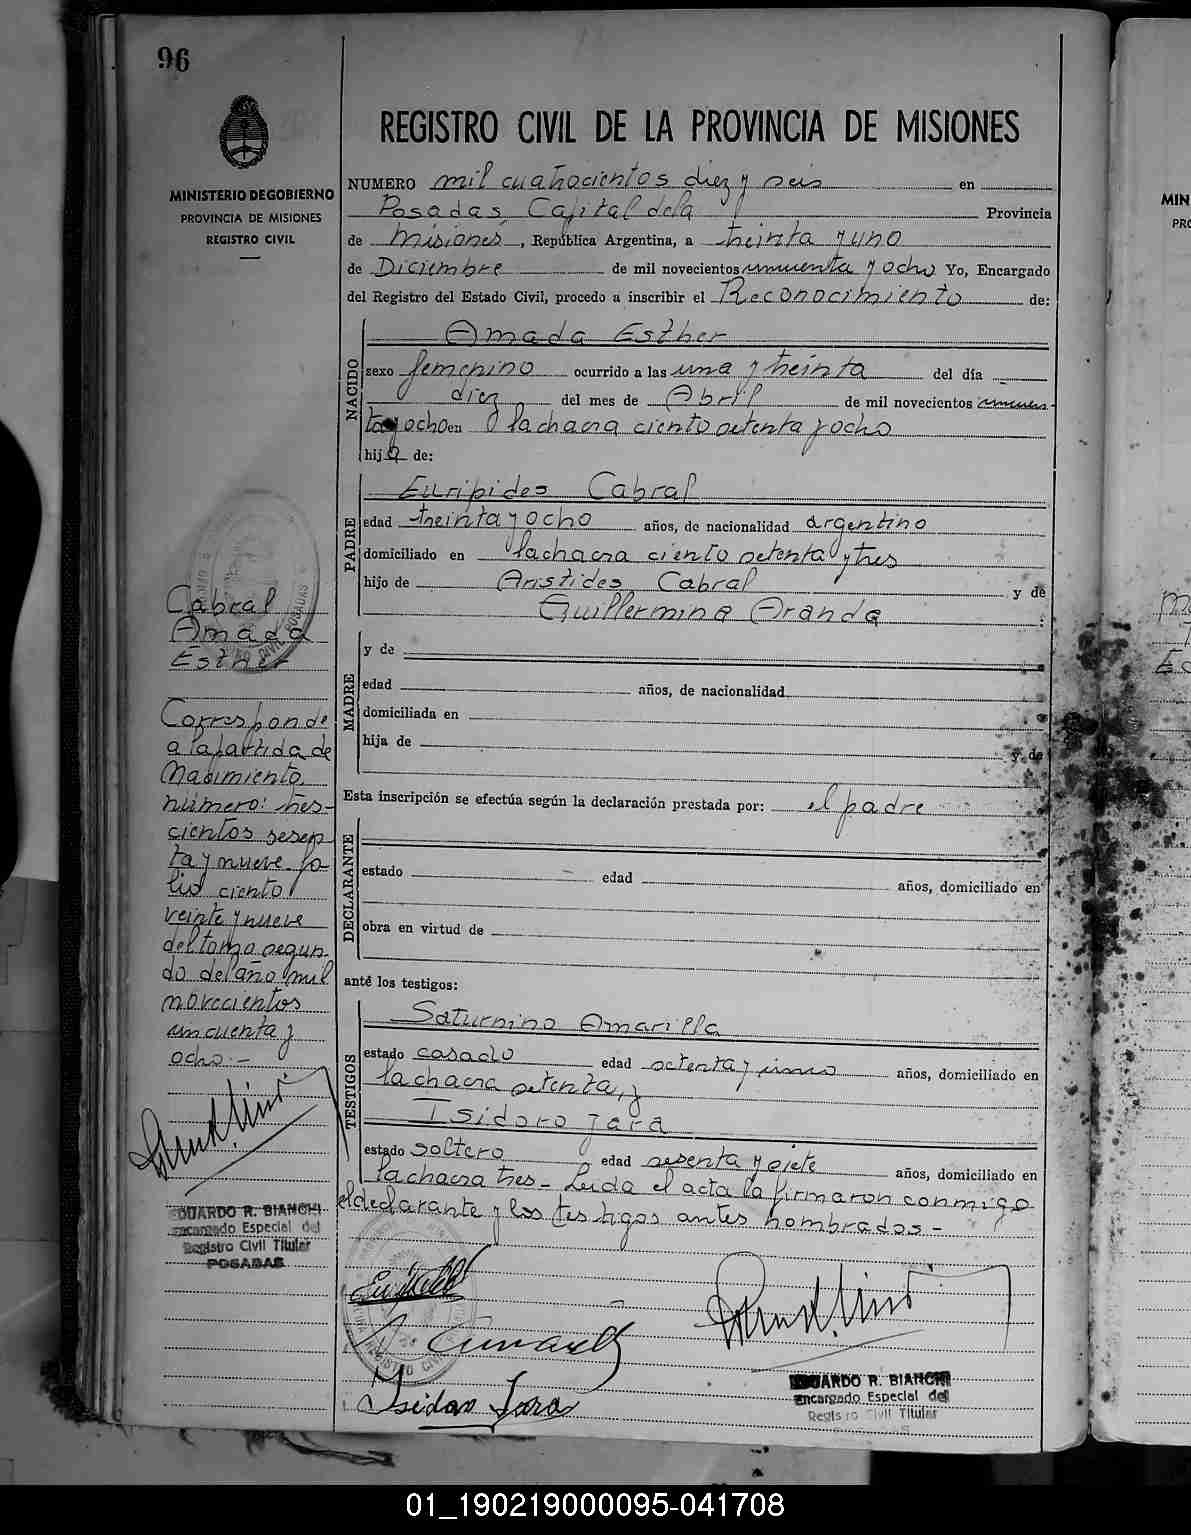 96
MINISTERIO DE GOBIERNO
PROVINCIA DE MISIONES
REGISTRO CIVIL
Cabral
Amada
Esther
Corresponde
a la partida de
Nacimiento
número: tres-
cientos sesen
ta y nueve fo-
lio ciento
veinte y nueve
del tomo segun
do del año mil
novecientos
cincuenta y
ocho.-
EDUARDO R. BIANCHI
Encargado Especial del
Registro Civil Titular
POSADAS
REGISTRO CIVIL DE LA PROVINCIA DE MISIONES
NUMERO mil cuatrocientos diez y seis en
Posadas, Capital de la Provincia
de Misiones, República Argentina, a treinta y uno
de Diciembre de mil novecientos cincuenta y ocho Yo, Encargado
del Registro del Estado Civil, procedo a inscribir el Reconocimiento de:
NACIDO
Amada Esther
sexo femenino ocurrido a las una y treinta del día
diez del mes de Abril de mil novecientos cincuen
ta y ocho en la chacra ciento setenta y ocho
hija de:
PADRE
Euripides Cabral
edad treinta y ocho años, de nacionalidad argentino
domiciliado en la chacra ciento setenta y tres
hijo de Aristides Cabral y de
Guillermina Aranda :
MADRE
y de
edad años, de nacionalidad
domiciliada en
hija de y de
Esta inscripción se efectúa según la declaración prestada por: el padre
DECLARANTE
estado edad años, domiciliado en
obra en virtud de
anté los testigos:
TESTIGOS
Saturnino Amarilla
estado casado edad setenta y uno años, domiciliado en
la chacra setenta, y
Isidoro Jara
estado soltero edad sesenta y siete años, domiciliado en
la chacra tres - Leida el acta la firmaron conmigo
el declarante y los testigos antes nombrados -
Isidoro Jara
EDUARDO R. BIANCHI
Encargado Especial del
Registro Civil Titular
MIN
PRO
01_190219000095-041708